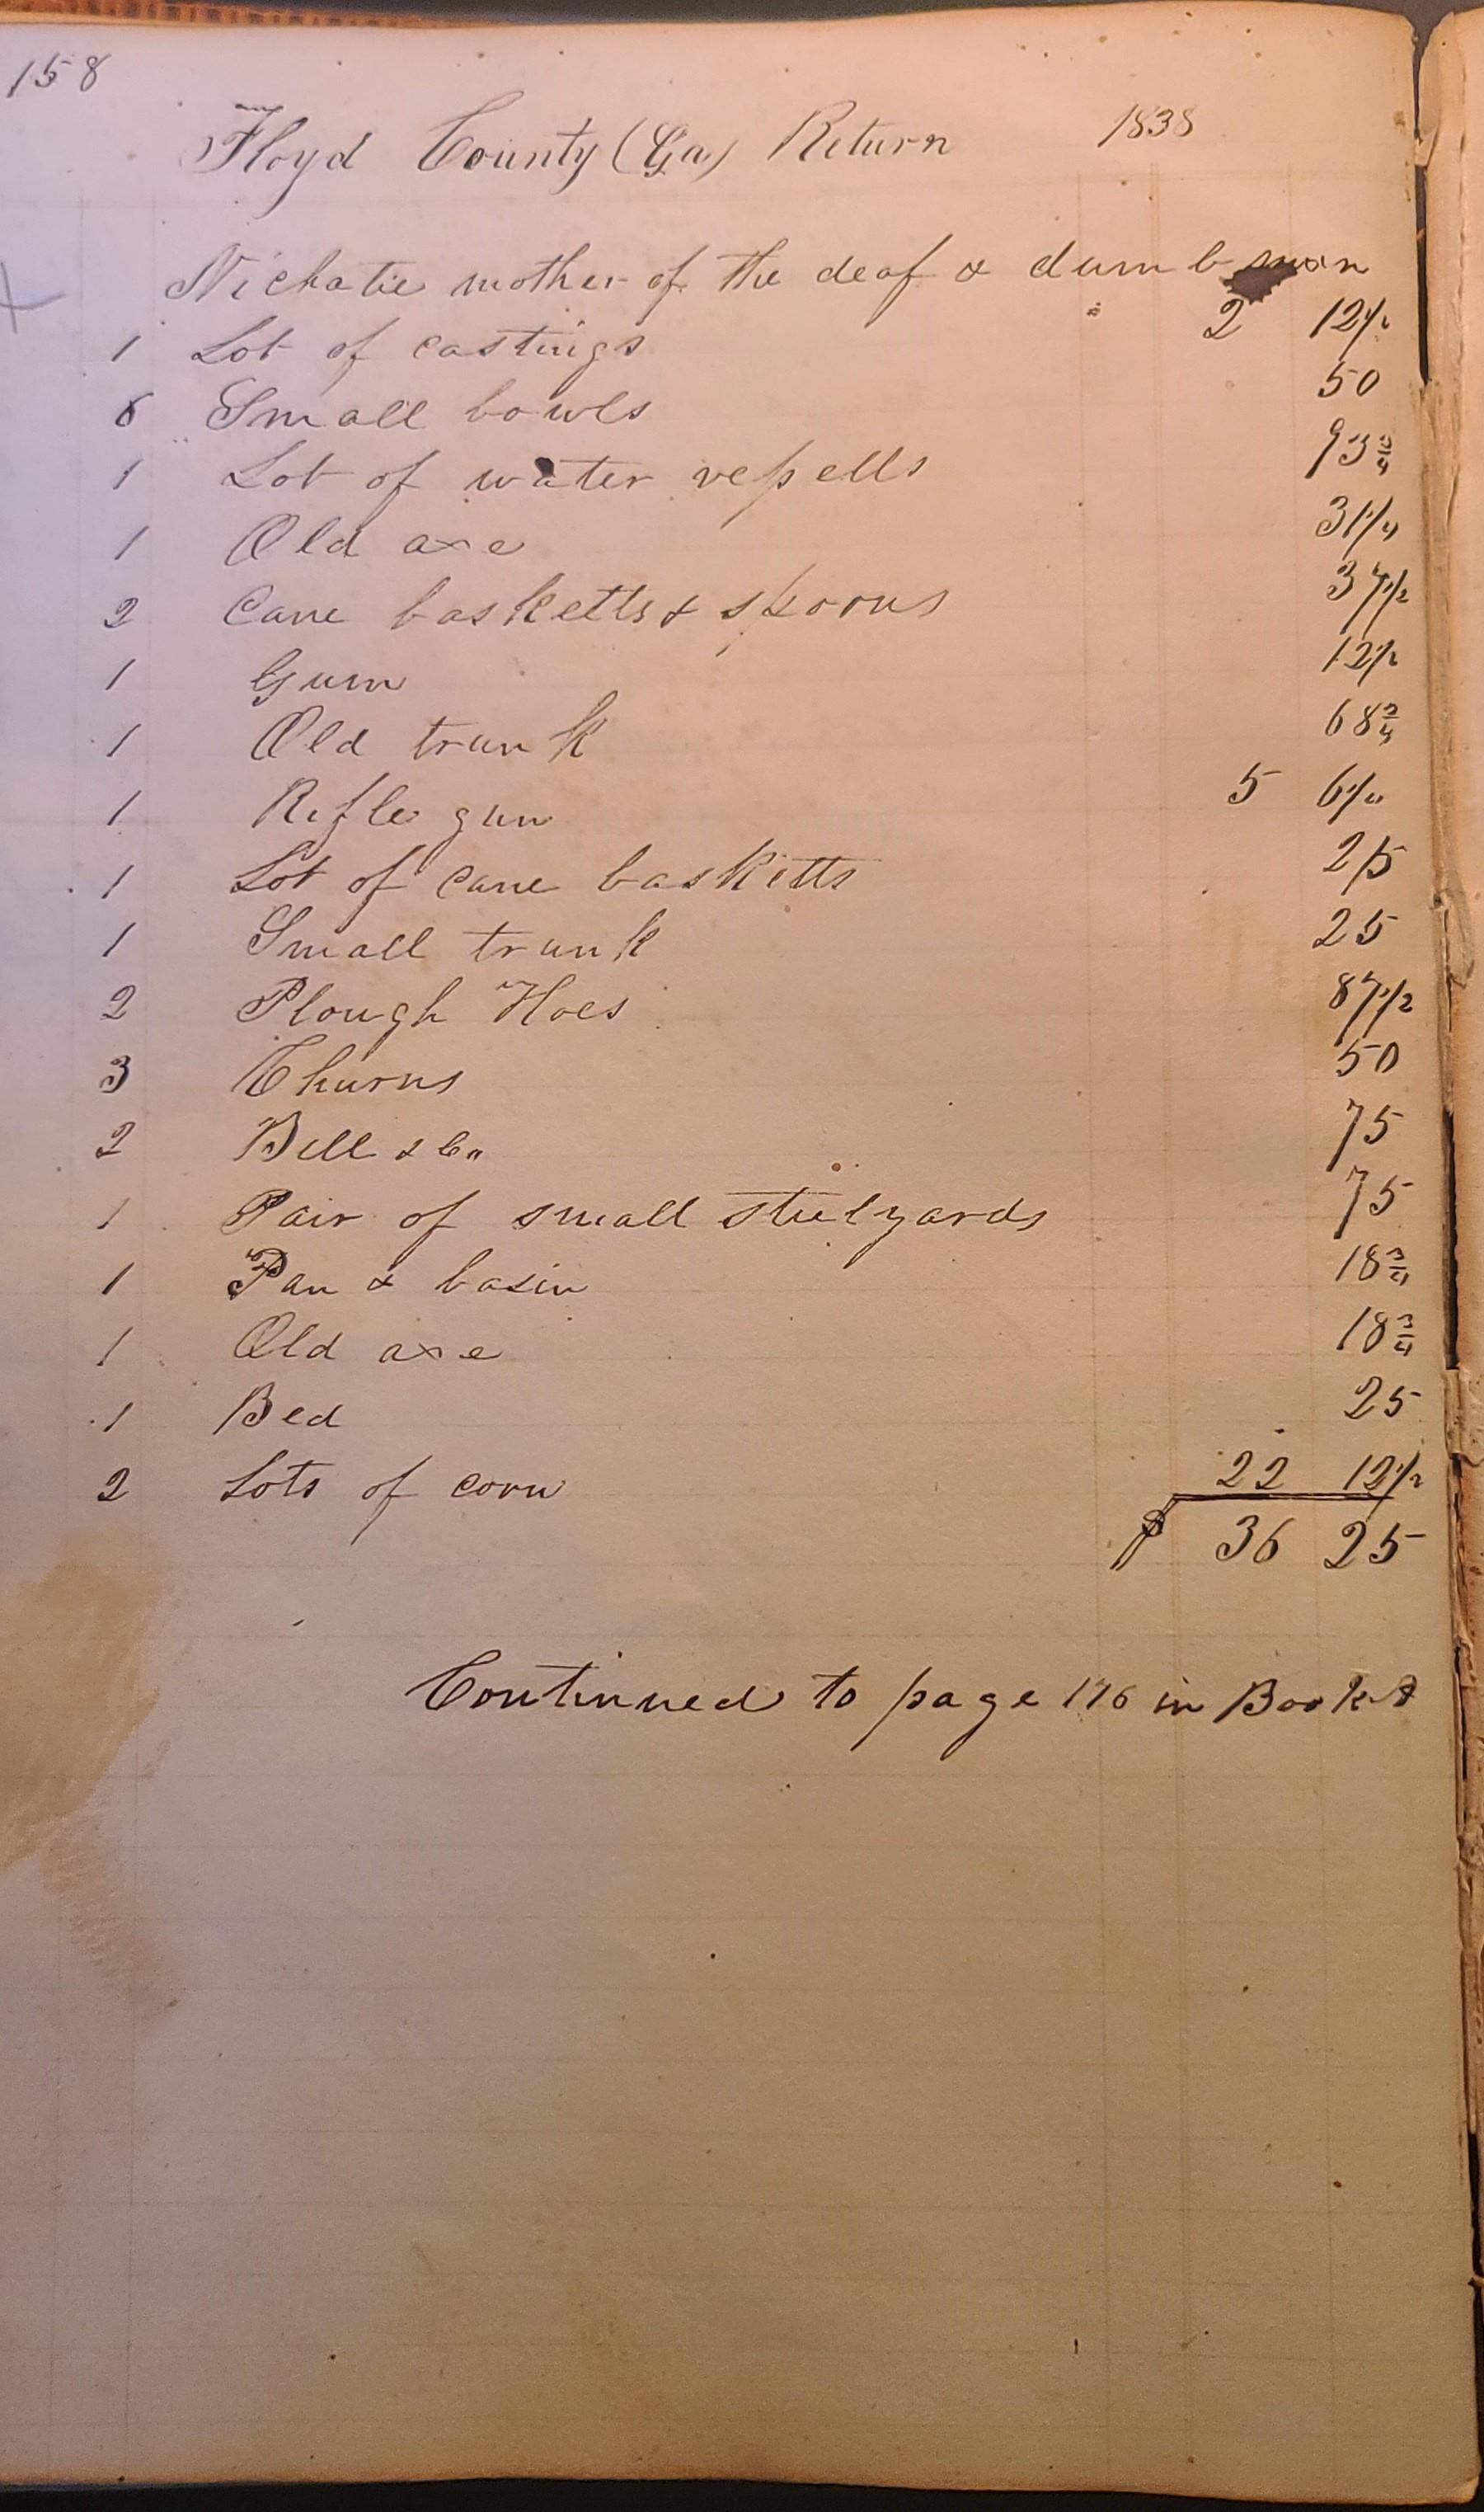 158
Floyd County (Ga) Return 1838
Nichatie mother of the deaf & dumb man
1 Lot of castings 2 12 1/2
6 Small bowls 50
1 Lot of water vessells 93 3/4
1 Old axe 31 1/4
2 Cane basketts & spoons 37 1/2
1 Gum 12 1/2
1 Old trunk 68 3/4
1 Rifle gun 5 6 1/4
1 Lot of cane basketts 25
1 Small trunk 25
2 Plough Hoes 87 1/2
3 Churns 50
2 Bell &c" 75
1 Pair of small stulyards 75
1 Pan & basin 18 3/4
1 Old axe 18 3/4
1 Bed 25
2 Lots of corn 22 12 1/2
$ 36 25
Continued to page 176 in Book A